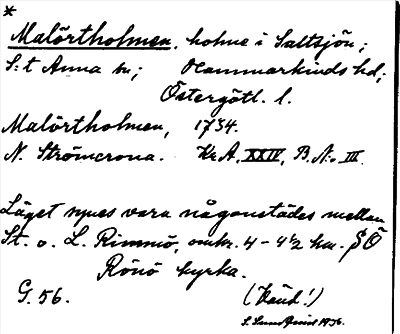 *
Malörtholmen, holme i Saltsjön;
S:t Anna sn; Hammarkinds hd;
Östergötl. l.
Malörtholmen, 1734.
N. Strömcrona. Kr.A. XXIV, B. No. III.
Läget synes vara någonstädes mellan
St. o. L. Rimmö, omkr. 4 - 4 1/2 km. SÖ
Rönö kyrka.
G. 56. (Känd!)
S. Lundqvist 1936.